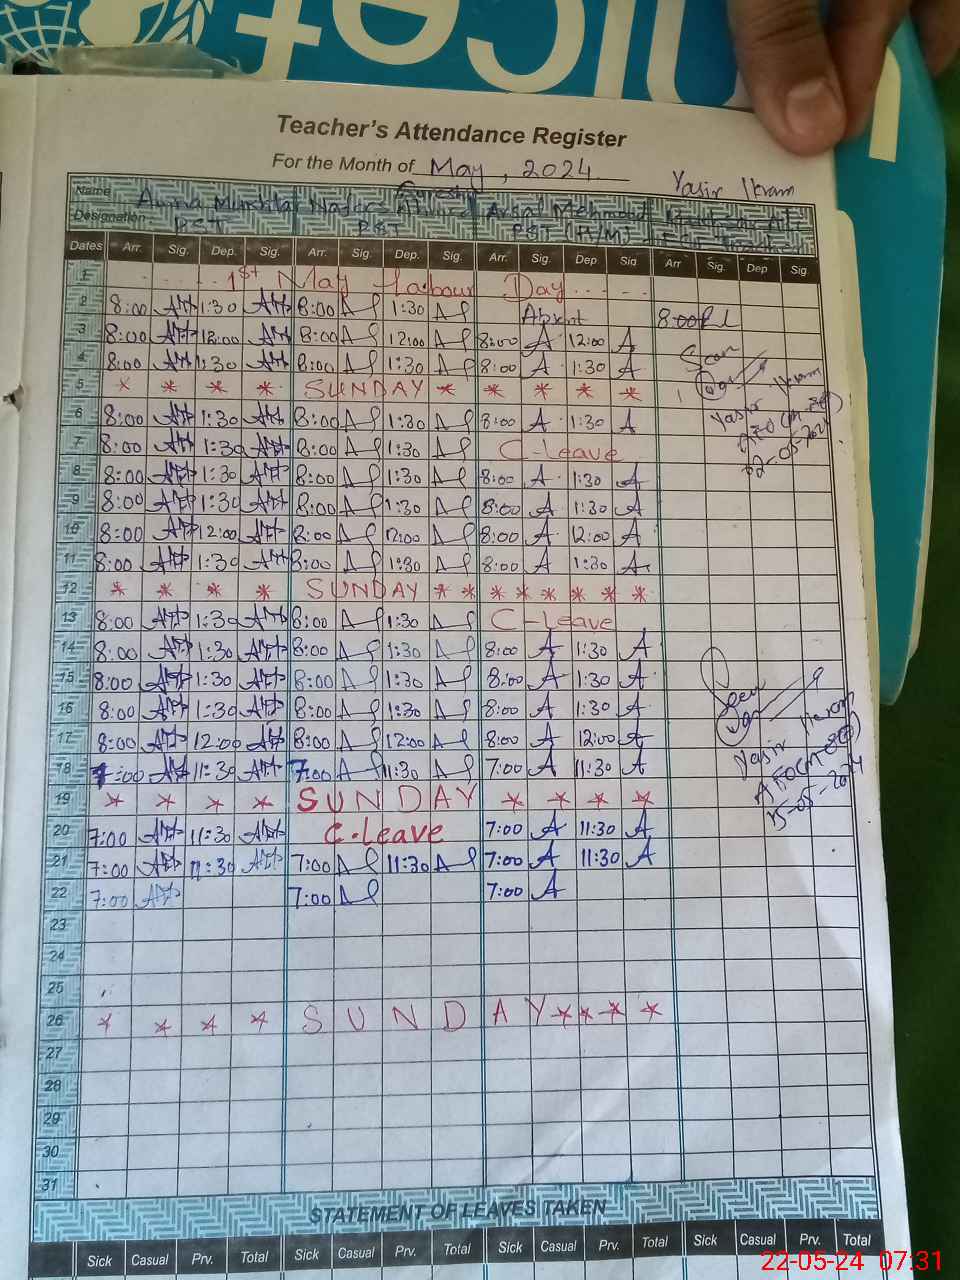 unicef
Teacher's Attendance Register
For the Month of May, 2024
Yasir Ikram
Name Amna Mushtaq
Arsal Mehmood
Designation PST PST PST (H/M)
Dates Arr. Sig. Dep. Sig. Arr. Sig. Dep. Sig. Arr. Sig. Dep Sig. Arr Sig. Dep Sig.
1 1st May Labour Day
2 8:00 1:30 8:00 1:30 Absent 8:00
3 8:00 12:00 8:00 12:00 8:00 A 12:00 A
4 8:00 1:30 8:00 1:30 8:00 A 1:30 A
5 * * * * SUNDAY * * * * *
6 8:00 1:30 8:00 1:30 8:00 A 1:30 A
Yasir Ikram
7 8:00 1:30 8:00 1:30 C-Leave
02-05-2024
8 8:00 1:30 8:00 1:30 8:00 A 1:30 A
9 8:00 1:30 8:00 1:30 8:00 A 1:30 A
10 8:00 12:00 8:00 12:00 8:00 A 12:00 A
11 8:00 1:30 8:00 1:30 8:00 A 1:30 A
12 * * * * SUNDAY * * * * * * *
13 8:00 1:30 8:00 1:30 C-Leave
14 8:00 1:30 8:00 1:30 8:00 A 1:30 A
15 8:00 1:30 8:00 1:30 8:00 A 1:30 A
16 8:00 1:30 8:00 1:30 8:00 A 1:30 A
17 8:00 12:00 8:00 12:00 8:00 A 12:00 A
Yasir Ikram
18 7:00 11:30 7:00 11:30 7:00 A 11:30 A
15-05-2024
19 * * * * SUNDAY * * * *
20 7:00 11:30 C-Leave 7:00 A 11:30 A
21 7:00 11:30 7:00 11:30 7:00 A 11:30 A
22 7:00 7:00 7:00 A
23
24
25
26 * * * * SUNDAY * * * *
27
28
29
30
31
STATEMENT OF LEAVES TAKEN
Sick Casual Prv. Total Sick Casual Prv. Total Sick Casual Prv. Total Sick Casual Prv. Total
22-05-24 07:31